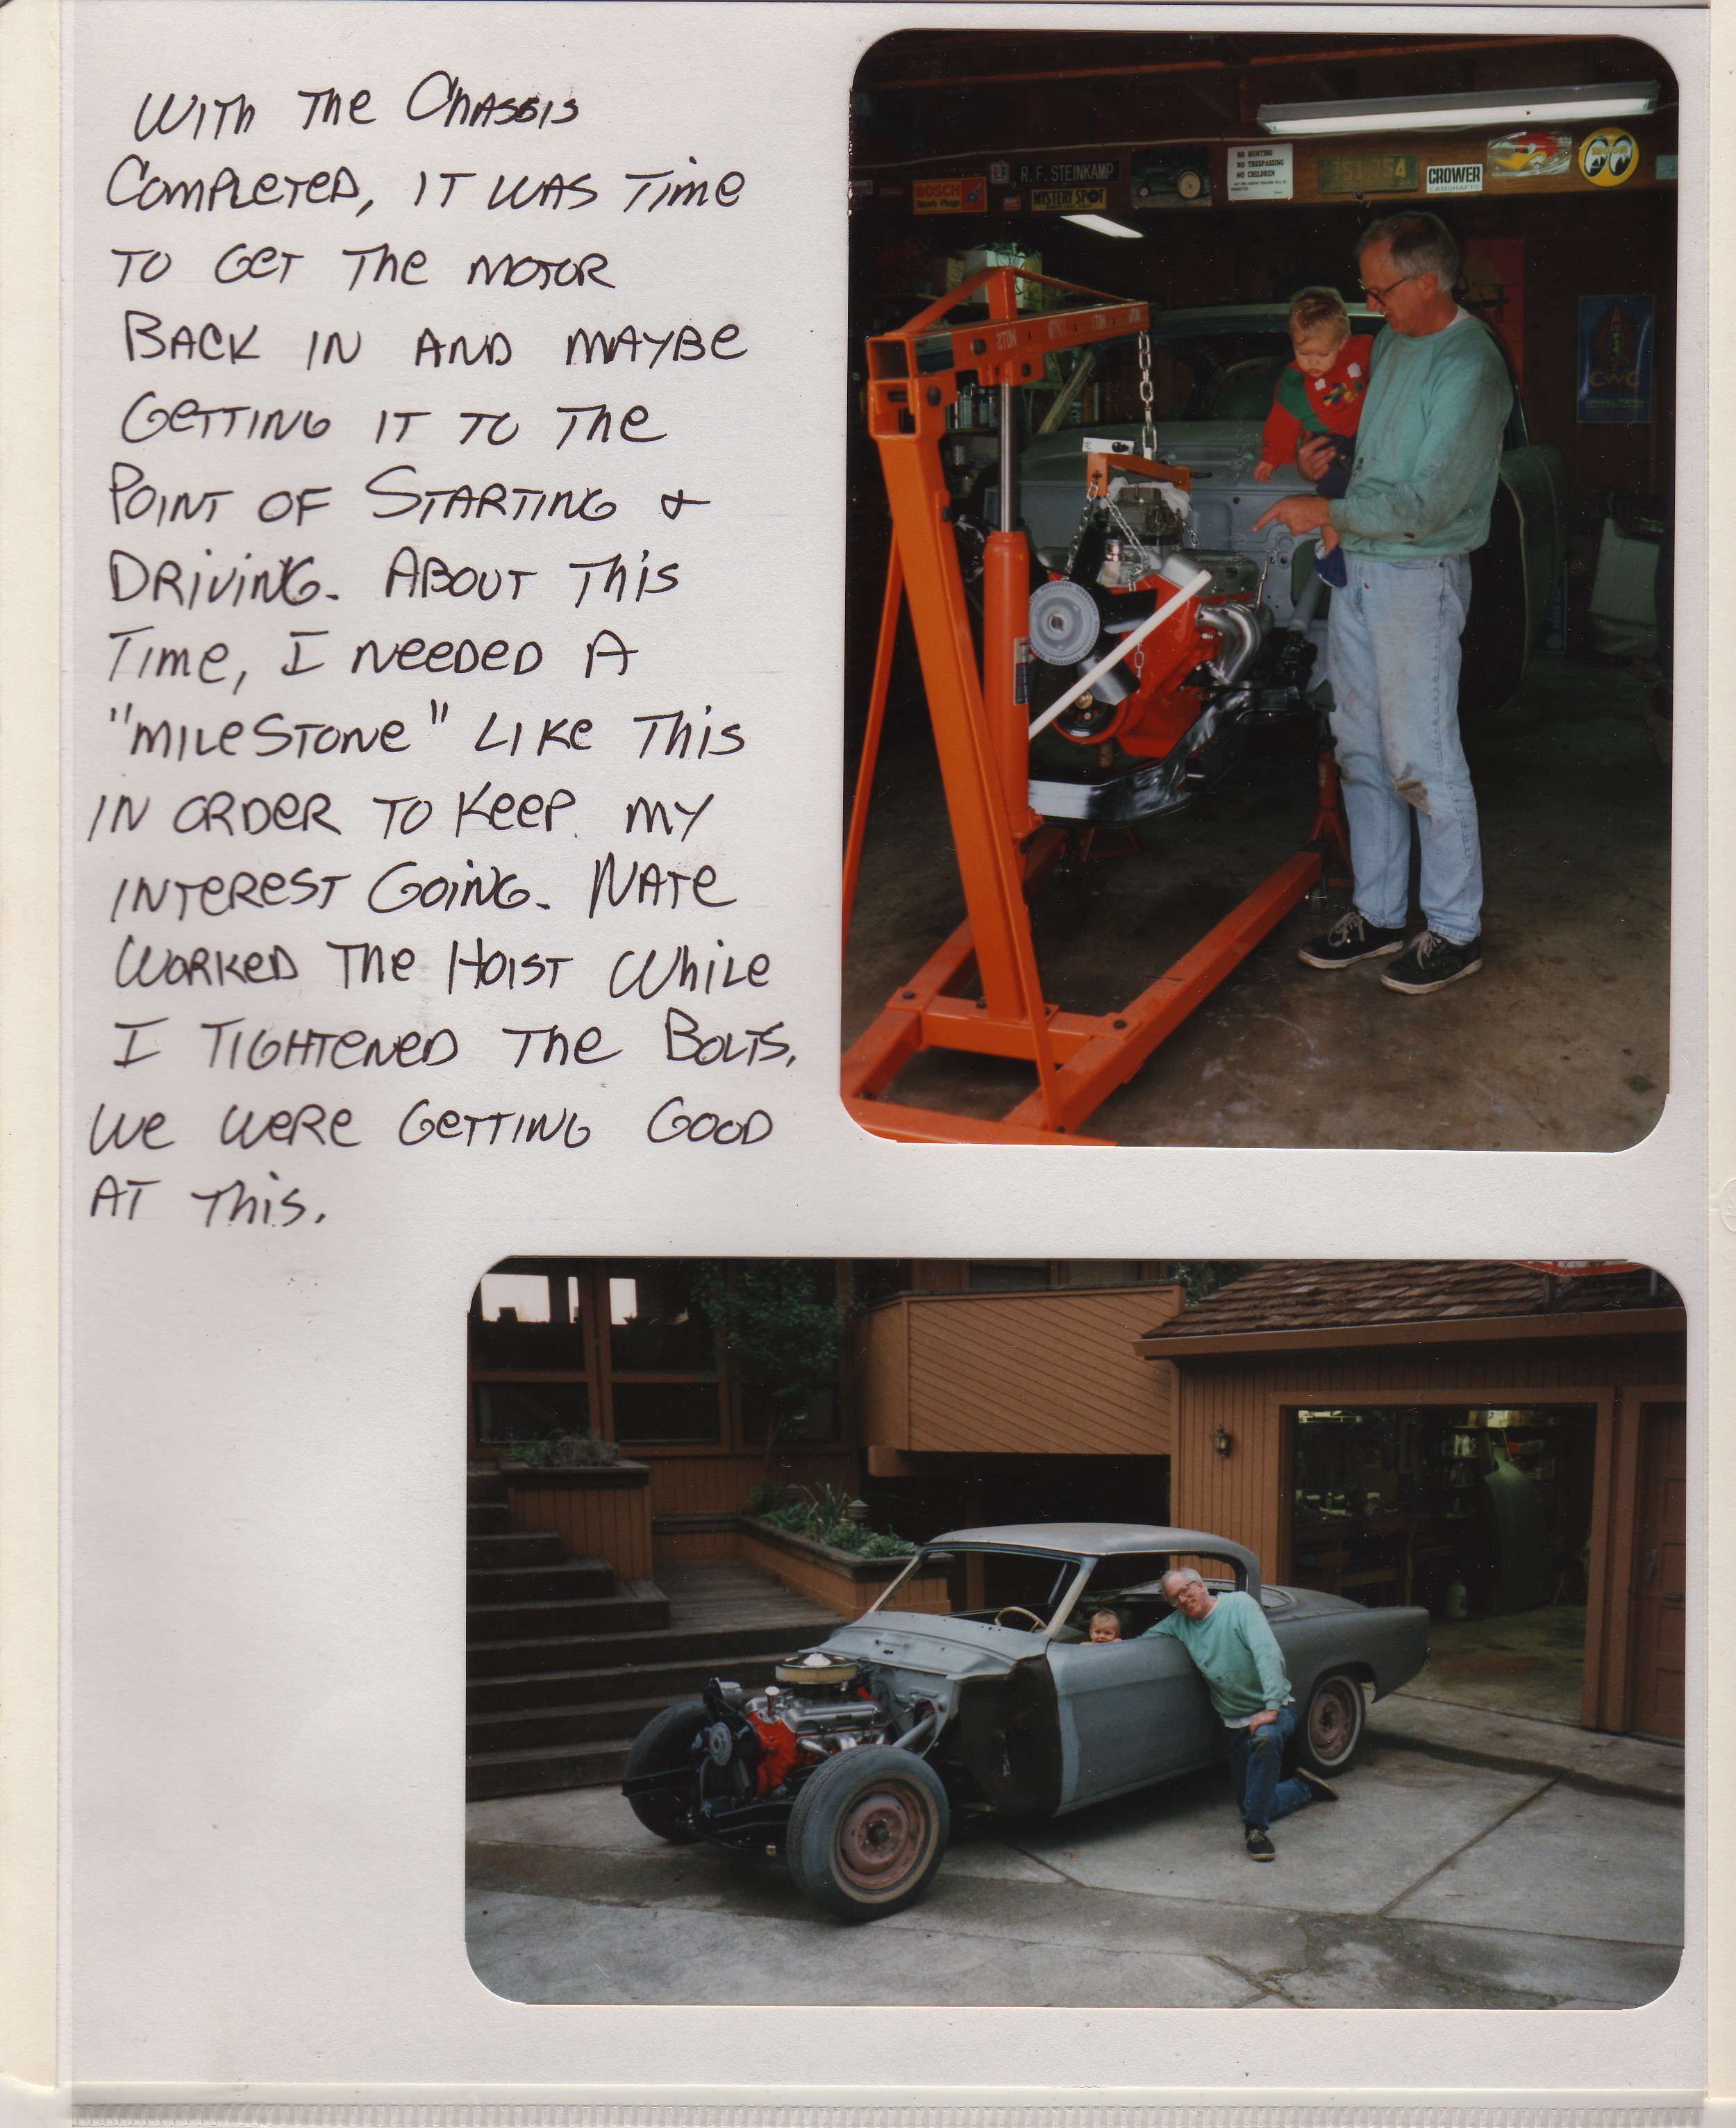 With The Chassis
Completed, it was Time
to get the motor
Back in and maybe
getting it to the
Point of Starting &
Driving. About This
Time, I needed a
"milestone" Like This
in order to keep my
interest going. Nate
worked the Hoist While
I Tightened the Bolts.
We were getting good
at this.
R.F. STEINKAMP
NO HUNTING
NO TRESPASSING
NO CHILDREN
BOSCH
Spark Plugs
MYSTERY SPOT
CROWER
CAMSHAFTS
CWC